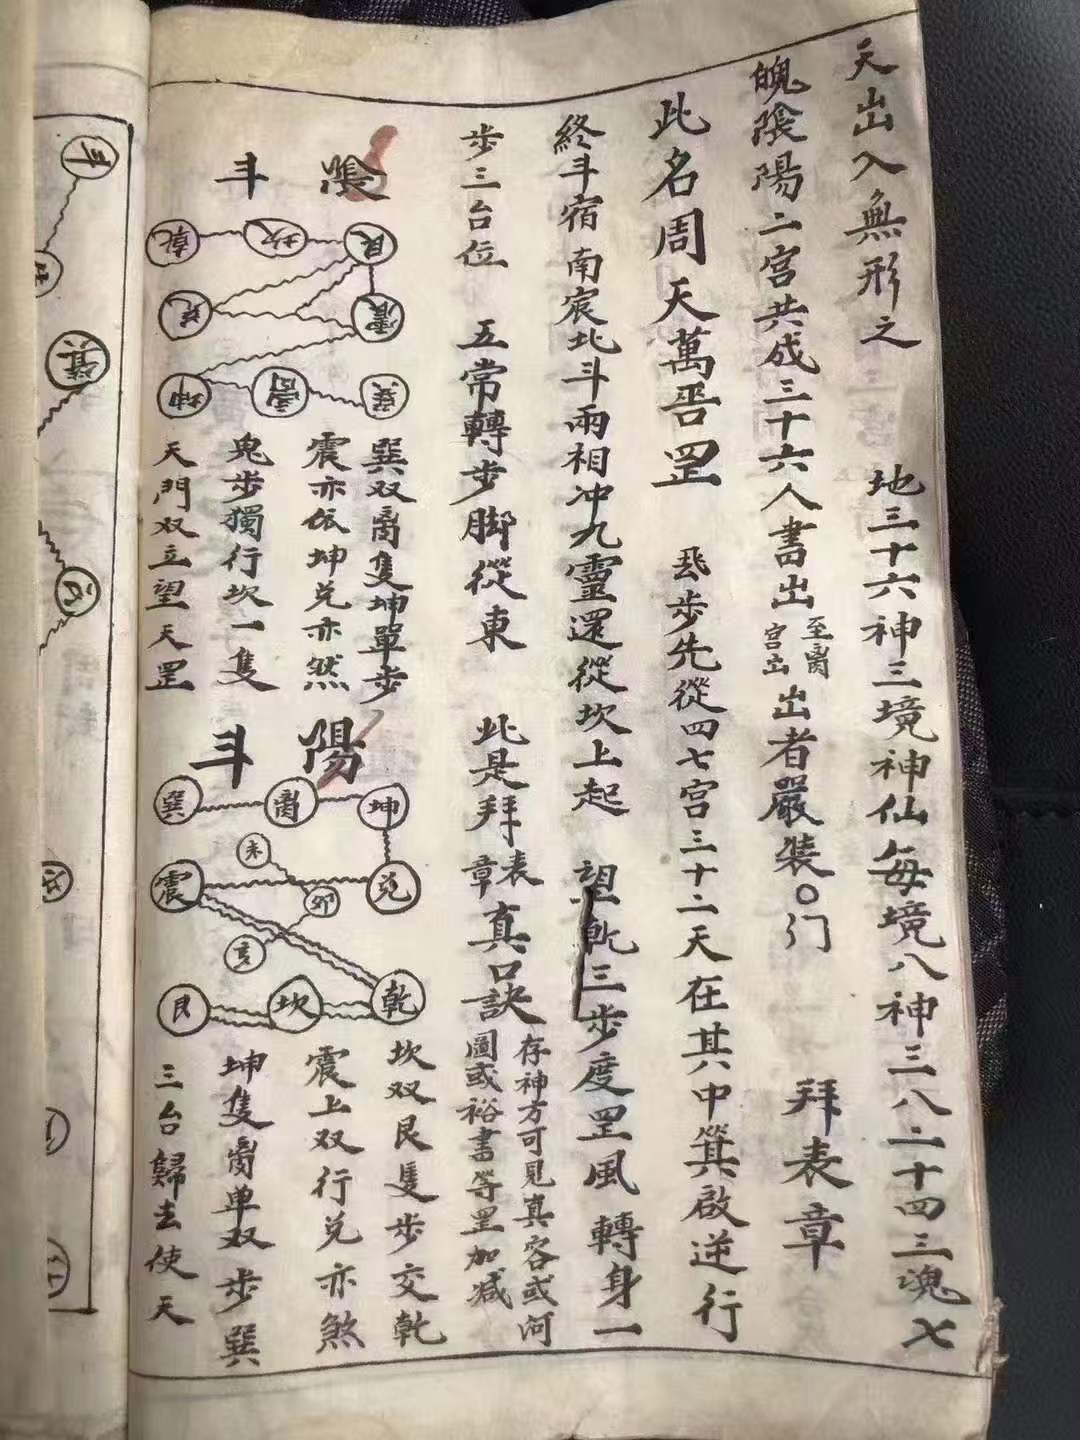 天出入無形之　地三十六神三境神仙每境八神三八二十四三魂七
魄陰陽二宮共成三十六人書出
至离
宮出
出者嚴裝○门　拜表章
此名周天萬
罡　步先從四七宮三十二天在其中箕啟逆行
終斗宿南宸北斗兩相冲九靈還從坎上起　望乹三步度罡風轉身一
步三台位　五常轉步脚從東　此是拜
表
章
真口訣
存神方可見真容或何
圖或裕書等罡加减
陰斗
艮坎乾
震兑
巽离坤
巽双离隻坤單步
震亦依坤兑亦然
鬼步獨行坎一隻
天門双立望天罡
陽斗
坤离巽
未
兑震
卯
亥
乾坎艮
坎双艮隻步交乹
震上双行兑亦煞
坤隻离单双步巽
三台歸去使天
斗
箕
氐